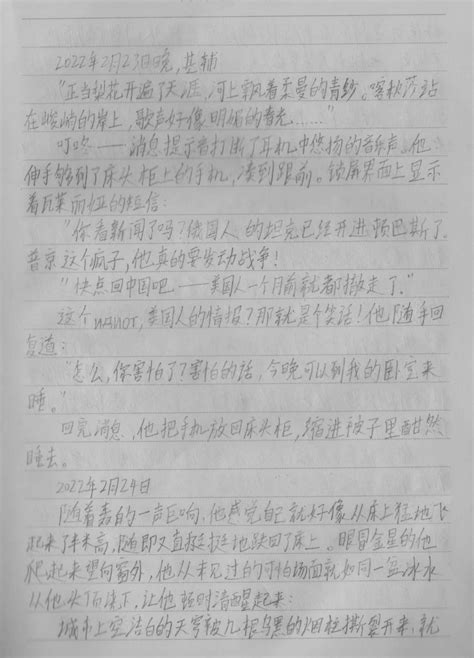 2022年2月23日晚,基辅
“正当梨花开遍了天涯,河上飘着柔曼的轻纱。喀秋莎站
在峻峭的岸上,歌声好像明媚的春光……”
叮咚——消息提示音打断了耳机中悠扬的音乐声。他
伸手够到了床头柜上的手机,凑到跟前。锁屏界面上显示
着瓦莱丽娅的短信:
“你看新闻了吗?俄国人的坦克已经开进顿巴斯了。
普京这个疯子,他真的要发动战争!
“快点回中国吧——美国人一个月前就都撤走了。”
这个,美国人的情报?那就是个笑话!他随手回
复道:
“怎么,你害怕了?害怕的话,今晚可以到我的卧室来
睡。”
回完消息,他把手机放回床头柜,缩进被子里酣然
睡去。
2022年2月24日
随着轰的一声巨响,他感觉自己就好像从床上猛地飞
起来了半米高,随即又直挺挺地跌回了床上。眼冒金星的他
爬起来望向窗外,他从未见过的可怕场面就如同一盆冰水
从他头顶浇下,让他顿时清醒起来:
城市上空洁白的天穹被几根乌黑的烟柱撕裂开来,就